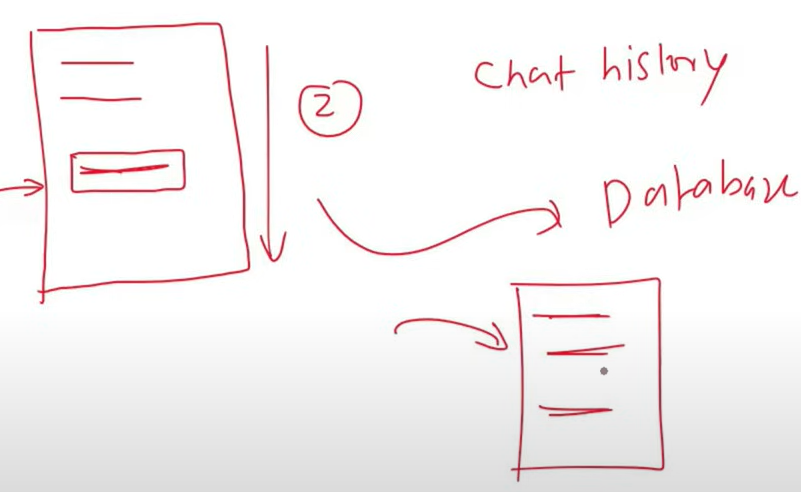 2
Chat history
Database